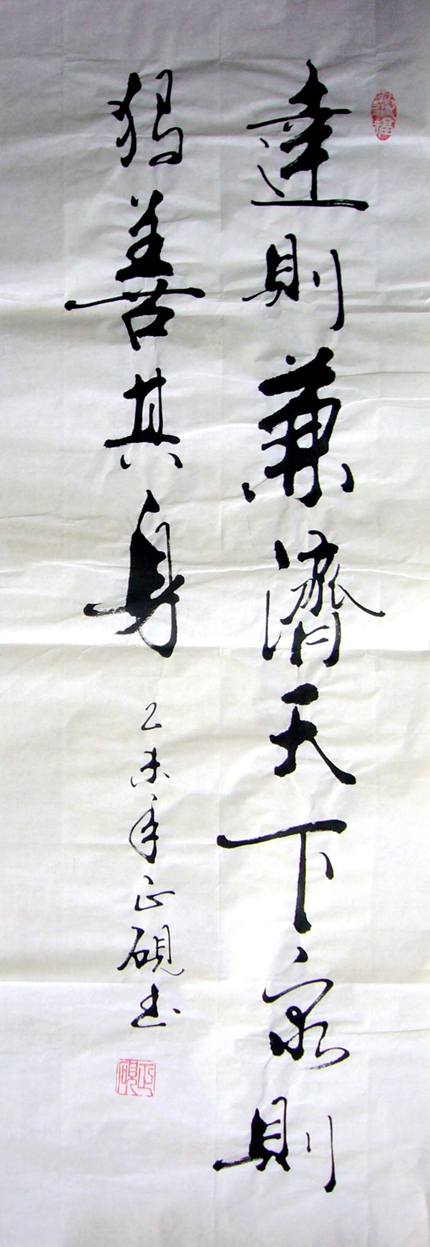 達則兼濟天下窮則
獨善其身
乙未年正硯書